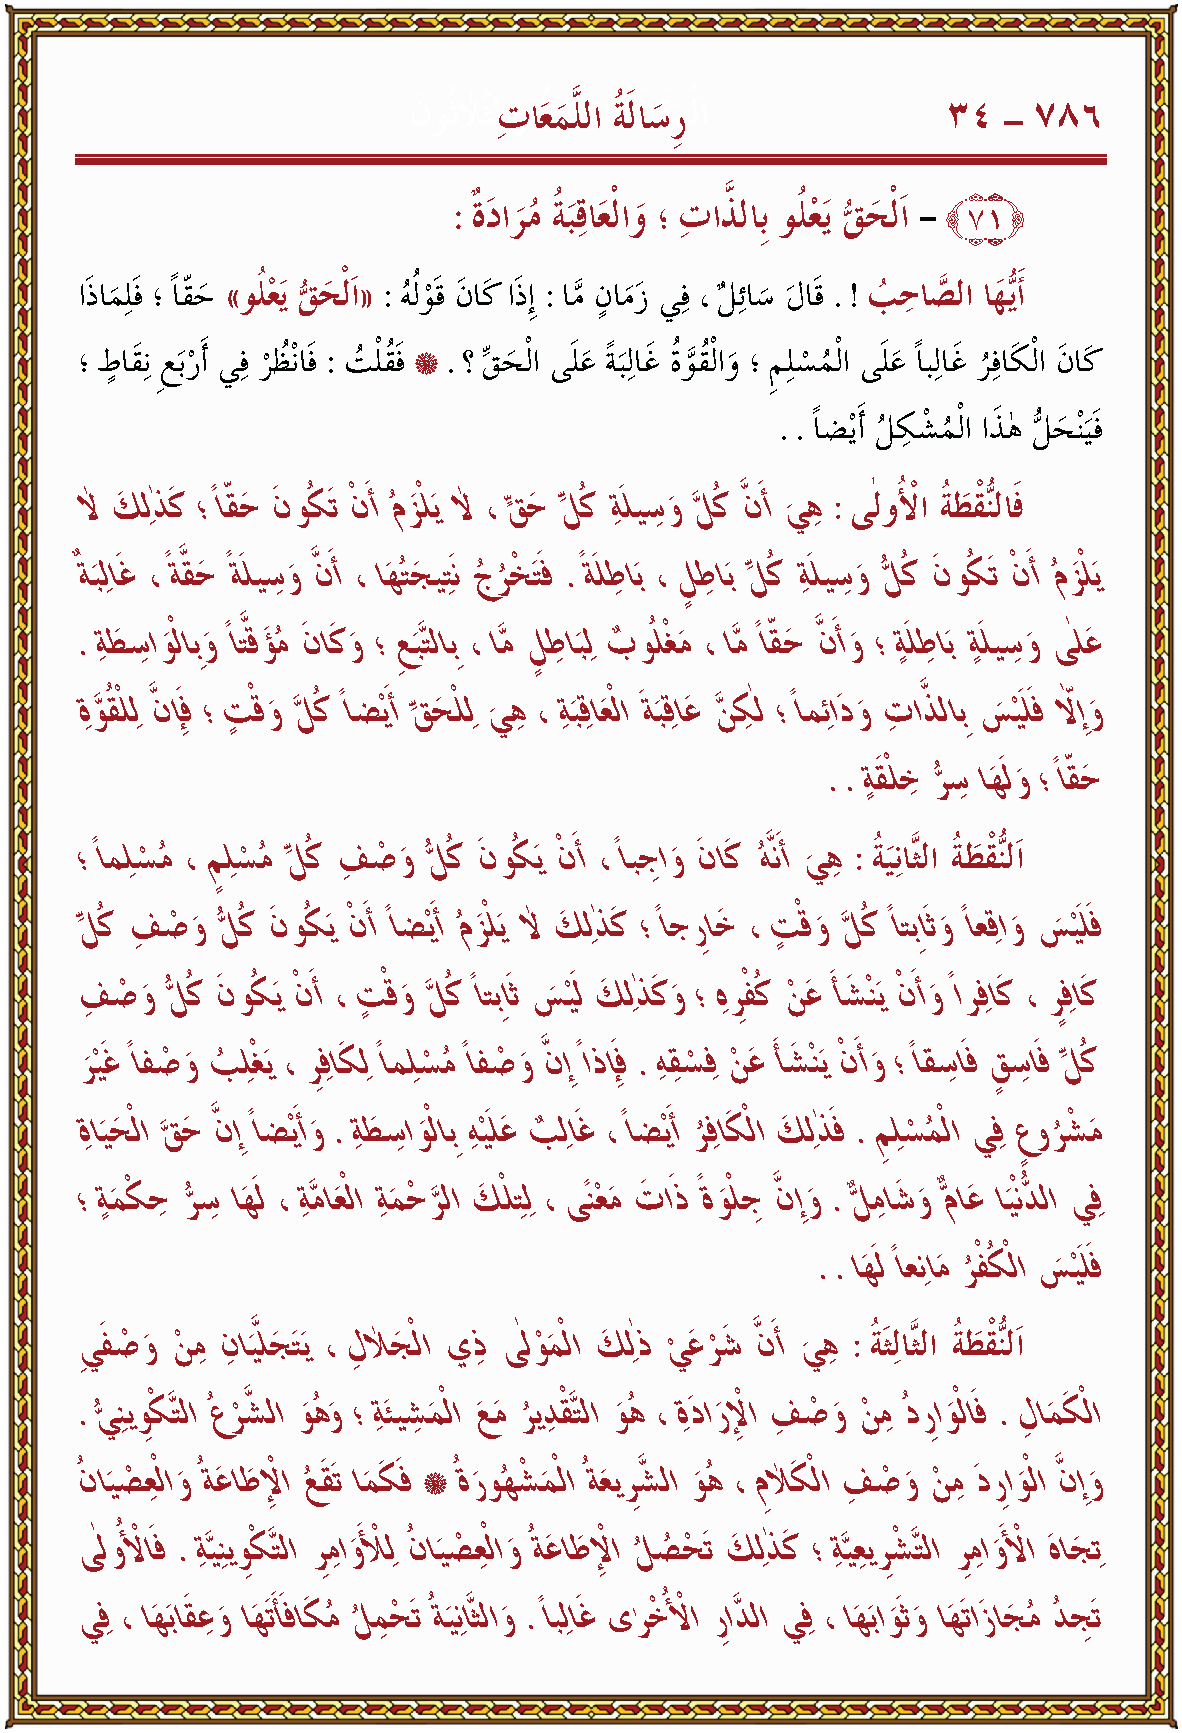 ٧٨٦ ــ ٣٤ رِسَالَةُ اللَّمَعَاتِ
﴿٧١﴾ – اَلْحَقُّ يَعْلُو بِالذَّاتِ ؛ وَالْعَاقِبَةُ مُرَادَةٌ :
أَيُّهَا الصَّاحِبُ ! . قَالَ سَائِلٌ ، فِي زَمَانٍ مَّا : إِذَا كَانَ قَوْلُهُ : «اَلْحَقُّ يَعْلُو» حَقّاً ؛ فَلِمَاذَا
كَانَ الْكَافِرُ غَالِباً عَلَى الْمُسْلِمِ ؛ وَالْقُوَّةُ غَالِبَةً عَلَى الْحَقِّ ؟ . ۞ فَقُلْتُ : فَانْظُرْ فِي أَرْبَعِ نِقَاطٍ ؛
فَيَنْحَلُّ هٰذَا الْمُشْكِلُ أَيْضاً . .
فَالنُّقْطَةُ الْأُولٰى : هِيَ أَنَّ كُلَّ وَسِيلَةِ كُلِّ حَقٍّ ، لَا يَلْزَمُ أَنْ تَكُونَ حَقّاً ؛ كَذٰلِكَ لَا
يَلْزَمُ أَنْ تَكُونَ كُلُّ وَسِيلَةِ كُلِّ بَاطِلٍ ، بَاطِلَةً . فَتَخْرُجُ نَتِيجَتُهَا ، أَنَّ وَسِيلَةً حَقَّةً ، غَالِبَةٌ
عَلٰى وَسِيلَةٍ بَاطِلَةٍ ؛ وَأَنَّ حَقّاً مَّا ، مَغْلُوبٌ لِبَاطِلٍ مَّا ، بِالتَّبَعِ ؛ وَكَانَ مُؤَقَّتاً وَبِالْوَاسِطَةِ .
وَإِلَّا فَلَيْسَ بِالذَّاتِ وَدَائِماً ؛ لٰكِنَّ عَاقِبَةَ الْعَاقِبَةِ ، هِيَ لِلْحَقِّ أَيْضاً كُلَّ وَقْتٍ ؛ فَإِنَّ لِلْقُوَّةِ
حَقّاً ؛ وَلَهَا سِرُّ خِلْقَةٍ . .
اَلنُّقْطَةُ الثَّانِيَةُ : هِيَ أَنَّهُ كَانَ وَاجِباً ، أَنْ يَكُونَ كُلُّ وَصْفِ كُلِّ مُسْلِمٍ ، مُسْلِماً ؛
فَلَيْسَ وَاقِعاً وَثَابِتاً كُلَّ وَقْتٍ ، خَارِجاً ؛ كَذٰلِكَ لَا يَلْزَمُ أَيْضاً أَنْ يَكُونَ كُلُّ وَصْفِ كُلِّ
كَافِرٍ ، كَافِراً وَأَنْ يَنْشَأَ عَنْ كُفْرِهِ ؛ وَكَذٰلِكَ لَيْسَ ثَابِتاً كُلَّ وَقْتٍ ، أَنْ يَكُونَ كُلُّ وَصْفِ
كُلِّ فَاسِقٍ فَاسِقاً ؛ وَأَنْ يَنْشَأَ عَنْ فِسْقِهِ . فَإِذاً إِنَّ وَصْفاً مُسْلِماً لِكَافِرٍ ، يَغْلِبُ وَصْفاً غَيْرَ
مَشْرُوعٍ فِي الْمُسْلِمِ . فَذٰلِكَ الْكَافِرُ أَيْضاً ، غَالِبٌ عَلَيْهِ بِالْوَاسِطَةِ . وَأَيْضاً إِنَّ حَقَّ الْحَيَاةِ
فِي الدُّنْيَا عَامٌّ وَشَامِلٌ . وَإِنَّ جِلْوَةً ذَاتَ مَعْنًى ، لِتِلْكَ الرَّحْمَةِ الْعَامَّةِ ، لَهَا سِرُّ حِكْمَةٍ ؛
فَلَيْسَ الْكُفْرُ مَانِعاً لَهَا . .
اَلنُّقْطَةُ الثَّالِثَةُ : هِيَ أَنَّ شَرْعَيْ ذٰلِكَ الْمَوْلٰى ذِي الْجَلَالِ ، يَتَجَلَّيَانِ مِنْ وَصْفَيِ
الْكَمَالِ . فَالْوَارِدُ مِنْ وَصْفِ الْإِرَادَةِ ، هُوَ التَّقْدِيرُ مَعَ الْمَشِيئَةِ ؛ وَهُوَ الشَّرْعُ التَّكْوِينِيُّ .
وَإِنَّ الْوَارِدَ مِنْ وَصْفِ الْكَلَامِ ، هُوَ الشَّرِيعَةُ الْمَشْهُورَةُ ۞ فَكَمَا تَقَعُ الْإِطَاعَةُ وَالْعِصْيَانُ
تِجَاهَ الْأَوَامِرِ التَّشْرِيعِيَّةِ ؛ كَذٰلِكَ تَحْصُلُ الْإِطَاعَةُ وَالْعِصْيَانُ لِلْأَوَامِرِ التَّكْوِينِيَّةِ . فَالْأُولٰى
تَجِدُ مُجَازَاتَهَا وَثَوَابَهَا ، فِي الدَّارِ الْأُخْرٰى غَالِباً . وَالثَّانِيَةُ تَحْمِلُ مُكَافَأَتَهَا وَعِقَابَهَا ، فِي